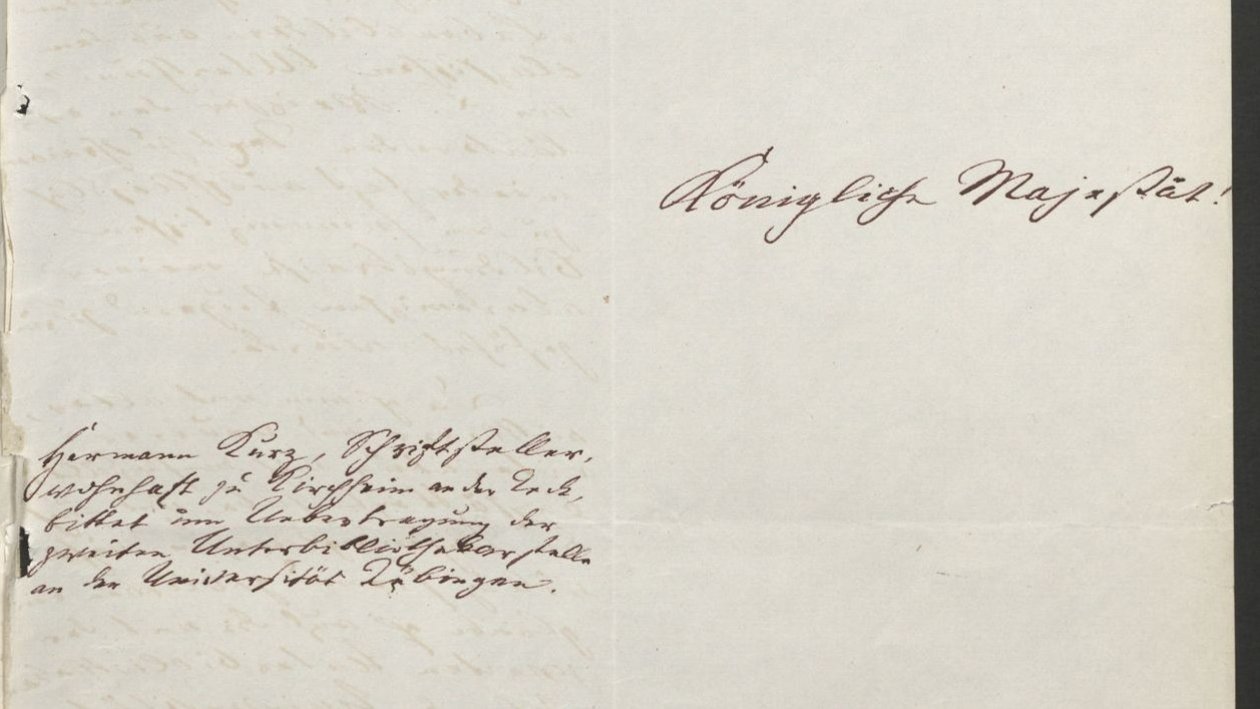 Königliche Majestät!
Hermann Kurz, Schriftsteller,
wohnhaft zu Kirchheim an der Teck,
bittet um Uebertragung der
zweiten Unterbibliothekarstelle
an der Universität Tübingen.